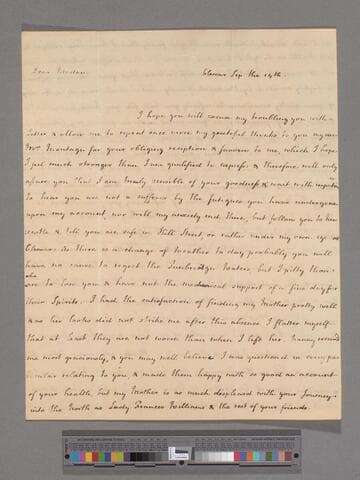 Dear Madam
Clewer Sep: the 14th
I hope you will excuse my troubling you with a
letter & allow me to repeat once more my grateful thanks to you my dear
Mrs Montagu for your obliging reception & favours to me, which I hope
I feel much stronger than I am qualified to express & therefore will only
assure you that I am truly sensible of your goodness & wait with impatience
to hear you are not a sufferer by the fatigues you have undergone
upon my account, nor will my anxiety end there, but follow you to
& till you are safe in Hill Street or rather under my own eye at
Clewer. As there is a change of weather to day probably you will
have no cause to regret the Tunbridge waters but I pity those
who
are to lose you & have not the support of a fine day for
their Spirits. I had the satisfaction of finding my Mother pretty well
& as her looks did not strike me after this absence I flatter myself
that at least they are not worse than when I left her, received
me most graciously, & you may well believe I was questioned in every par
ticular relating to you & made them happy with so good an account
of your health, but my Mother is as much displeased with your Journey
into the North as Lady Frances Williams & the rest of your friends.